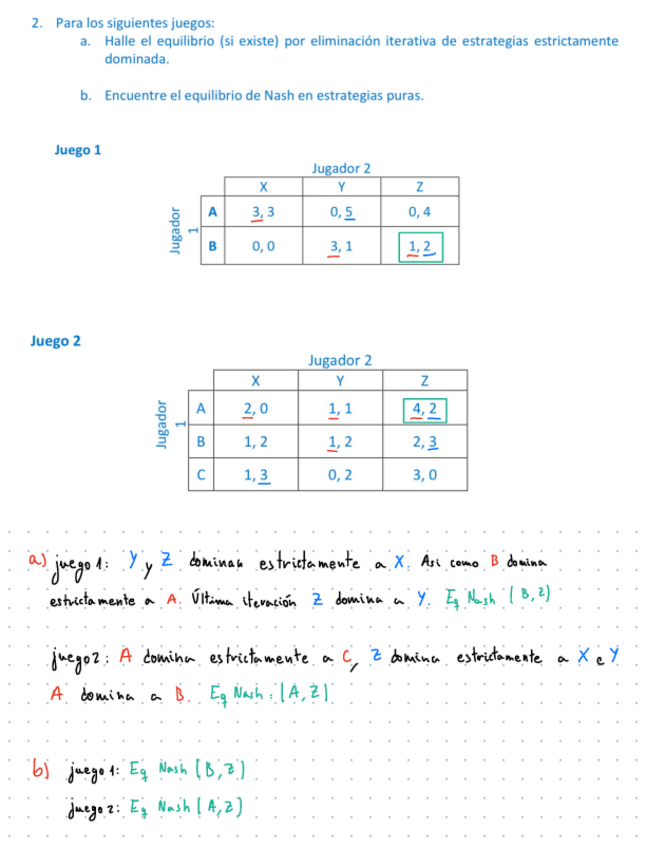 2. Para los siguientes juegos:
a. Halle el equilibrio (si existe) por eliminación iterativa de estrategias estrictamente
dominada.
b. Encuentre el equilibrio de Nash en estrategias puras.
Juego 1
Jugador 2
X Y Z
Jugador 1
A 3, 3 0, 5 0, 4
B 0, 0 3, 1 1, 2
Juego 2
Jugador 2
X Y Z
Jugador 1
A 2, 0 1, 1 4, 2
B 1, 2 1, 2 2, 3
C 1, 3 0, 2 3, 0
a) juego 1: Y y Z dominan estrictamente a X. Asi como B domina
estrictamente a A. Última iteración Z domina a Y. Eq Nash (B, Z)
juego 2: A domina estrictamente a C, Z domina estrictamente a X e Y
A domina a B. Eq Nash: (A, Z)
b) juego 1: Eq Nash (B, Z)
juego 2: Eq Nash (A, Z)